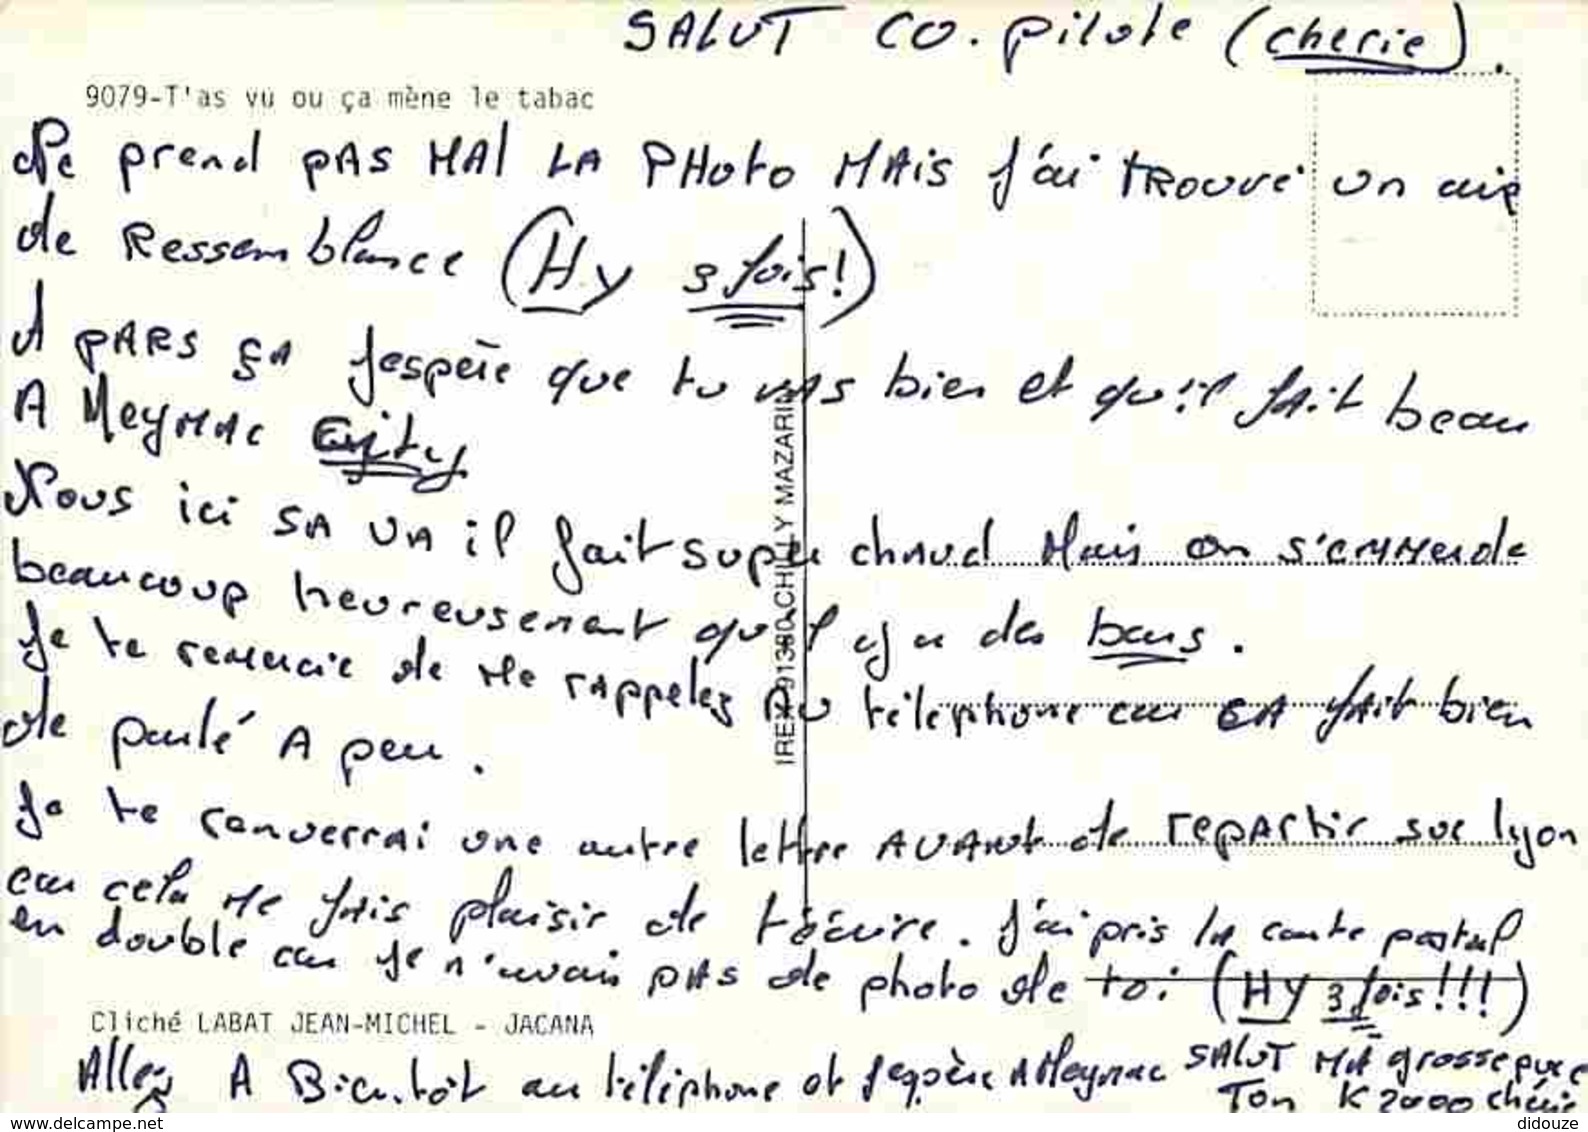 SALUT CO.pilote (cherie).
9079-T'as vu ou ça mène le tabac
Ne prend pAS MAl LA PHoto MAis J'ai TROUVé un air
de Ressemblance (Hy 3 fois!)
A PARS ÇA Jespère que tu VAS bien et qu'il fait beau
A MeyMAc City
Nous ici SA VA il fait super chaud Mais on s'emmerde
beaucoup heureusement qu'il y a des bars.
Je te remercie de Me rappelez Au téléphone car CA fait bien
de parlé A peu.
Je te renverrai une autre lettre AVANt de repartir sur lyon
car cela Me fais plaisir de técrire. J'ai pris la carte postal
en double car je n'avais pAS de photo de toi (Hy 3 fois!!!)
IREX 91380 CHILLY MAZARIN
Cliché LABAT JEAN-MICHEL - JACANA
Allez A Bientôt au téléphone et Jespère A Meymac SALUT MA grosse puce
Ton K2000 chérie
www.delcampe.net
didouze